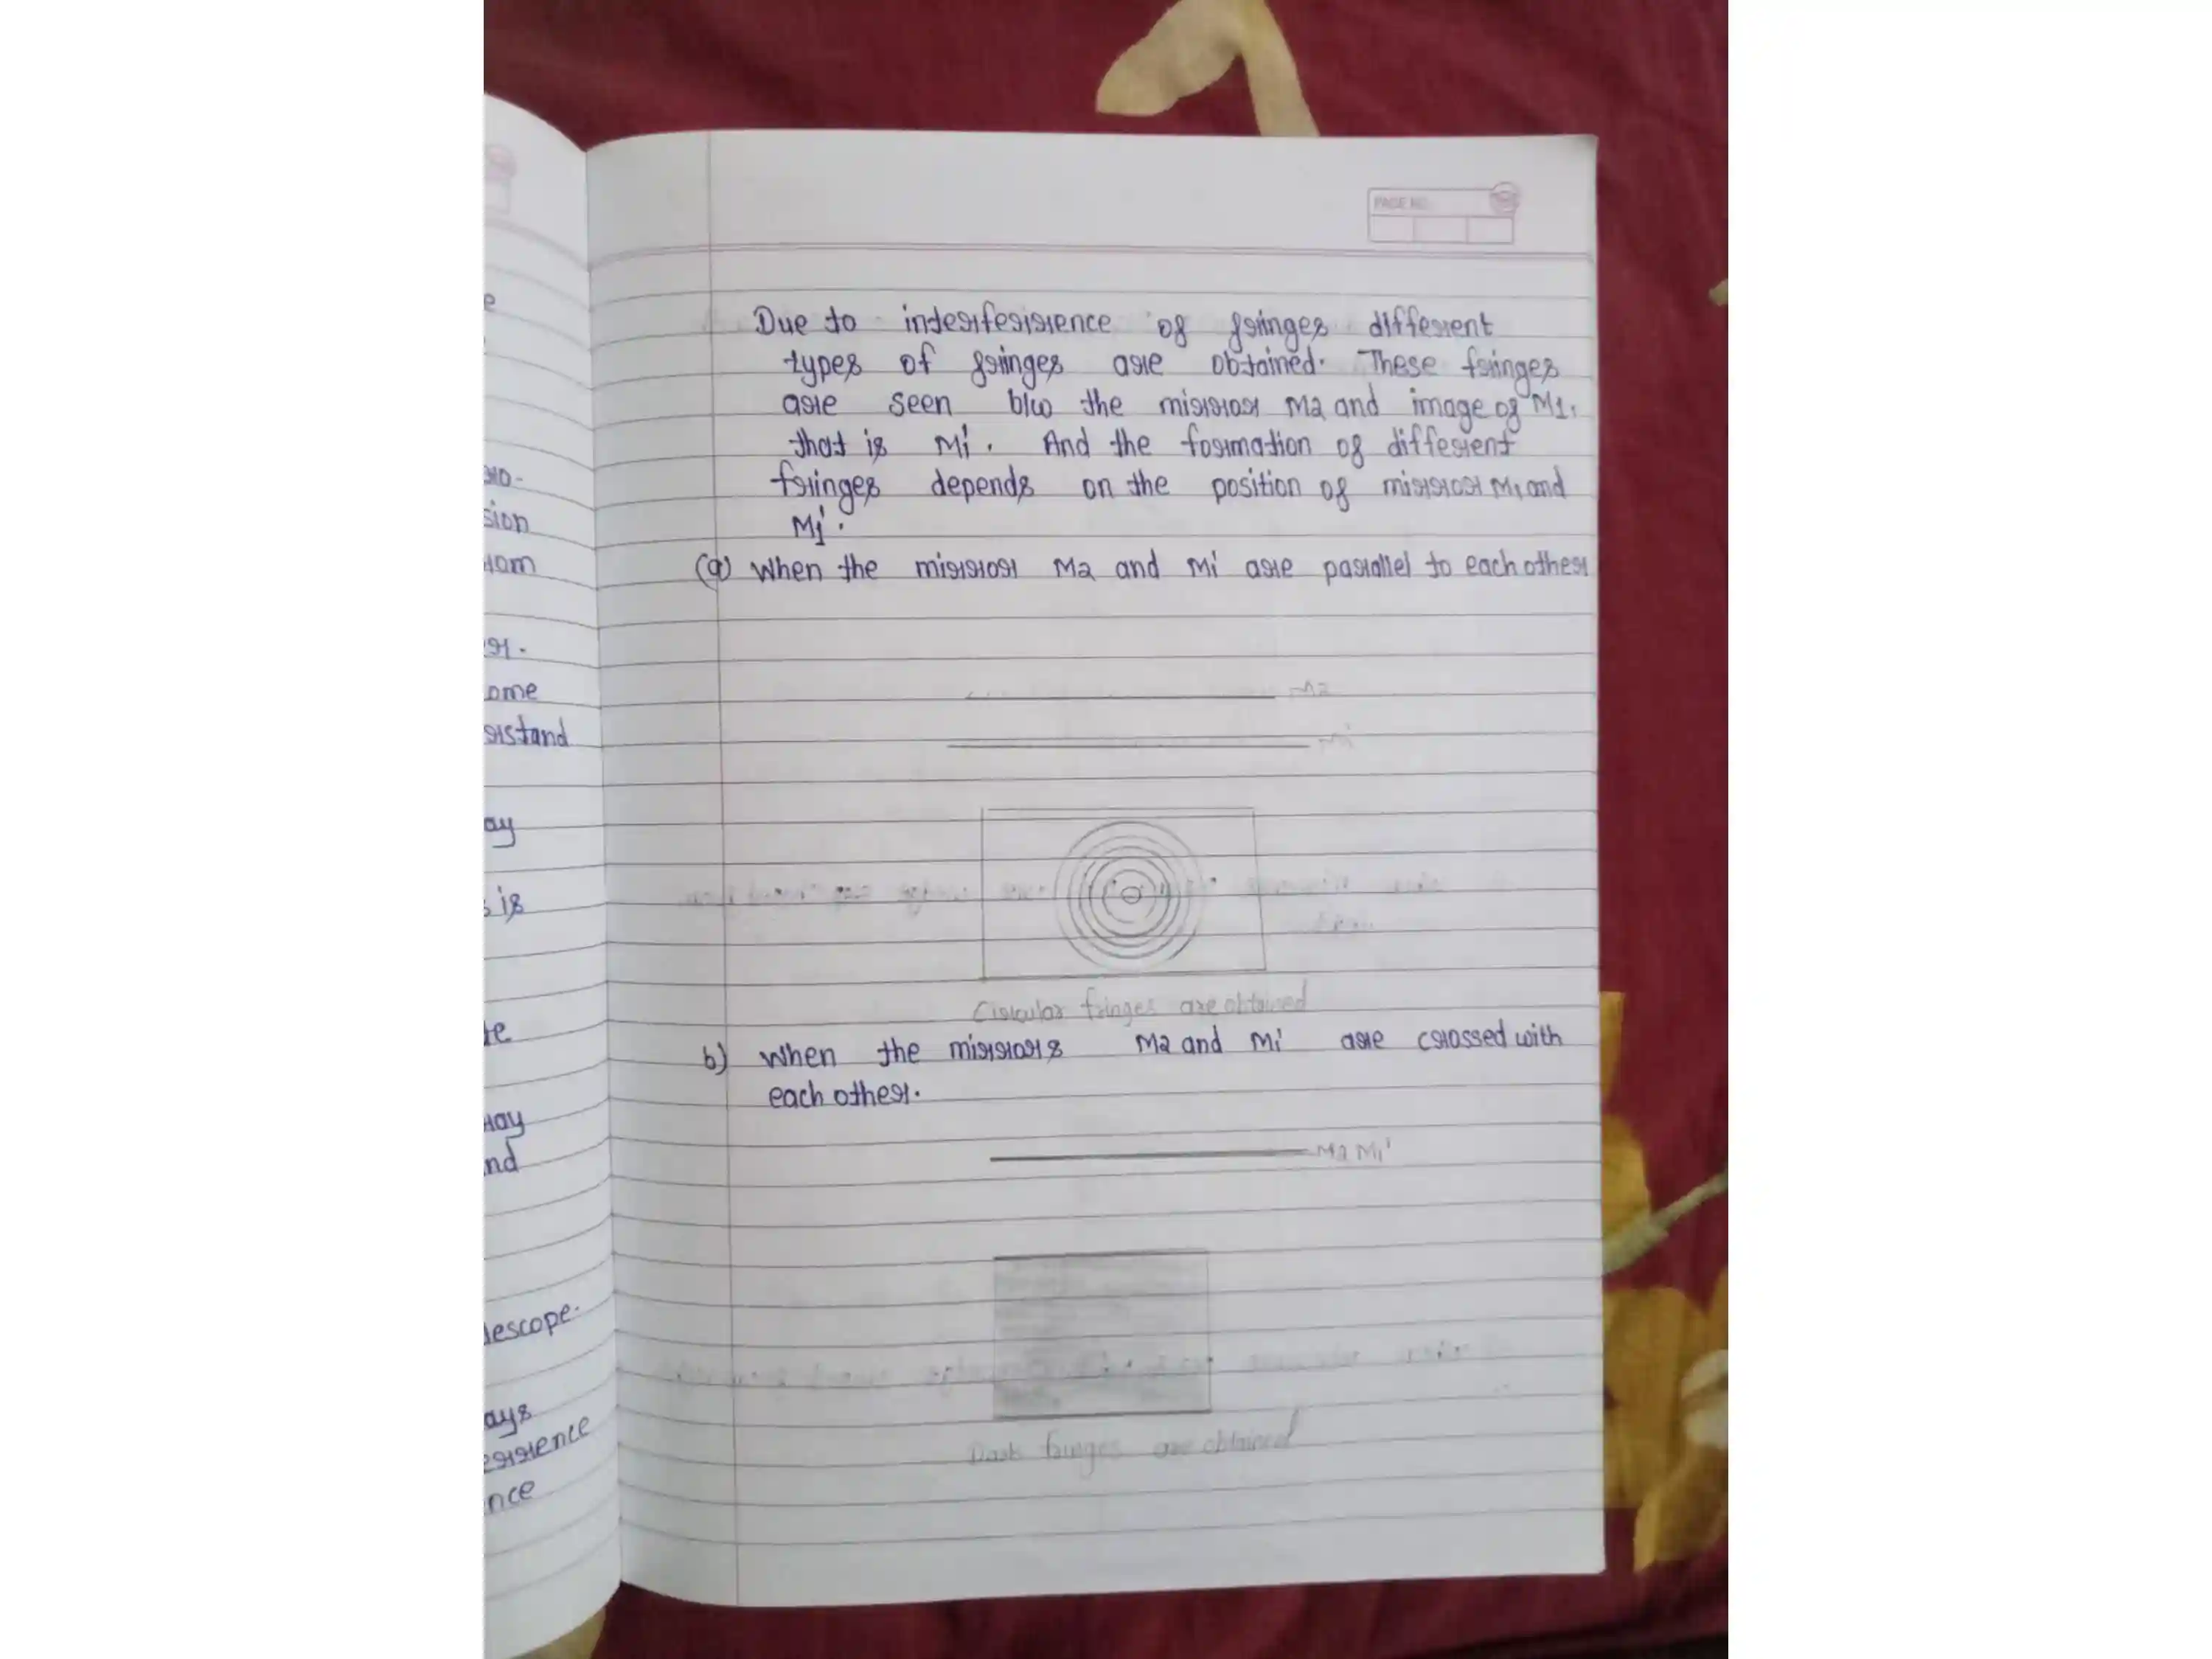 e
PAGE NO.
Due to interferrence of fringes different
types of fringes are obtained. These fringes
are seen b/w the mirror M2 and image of M1,
that is M1'. And the formation of different
fringes depends on the position of mirror M1 and
M1'.
(a) When the mirror M2 and M1' are parallel to each other
M2
M1'
Circular fringes are obtained
b) When the mirrors M2 and M1' are crossed with
each other.
M2 M1'
Dark fringes are obtained
ro-
sion
rom
r.
ome
rstand
ay
s is
te
ray
nd
lescope.
ays
errence
nce